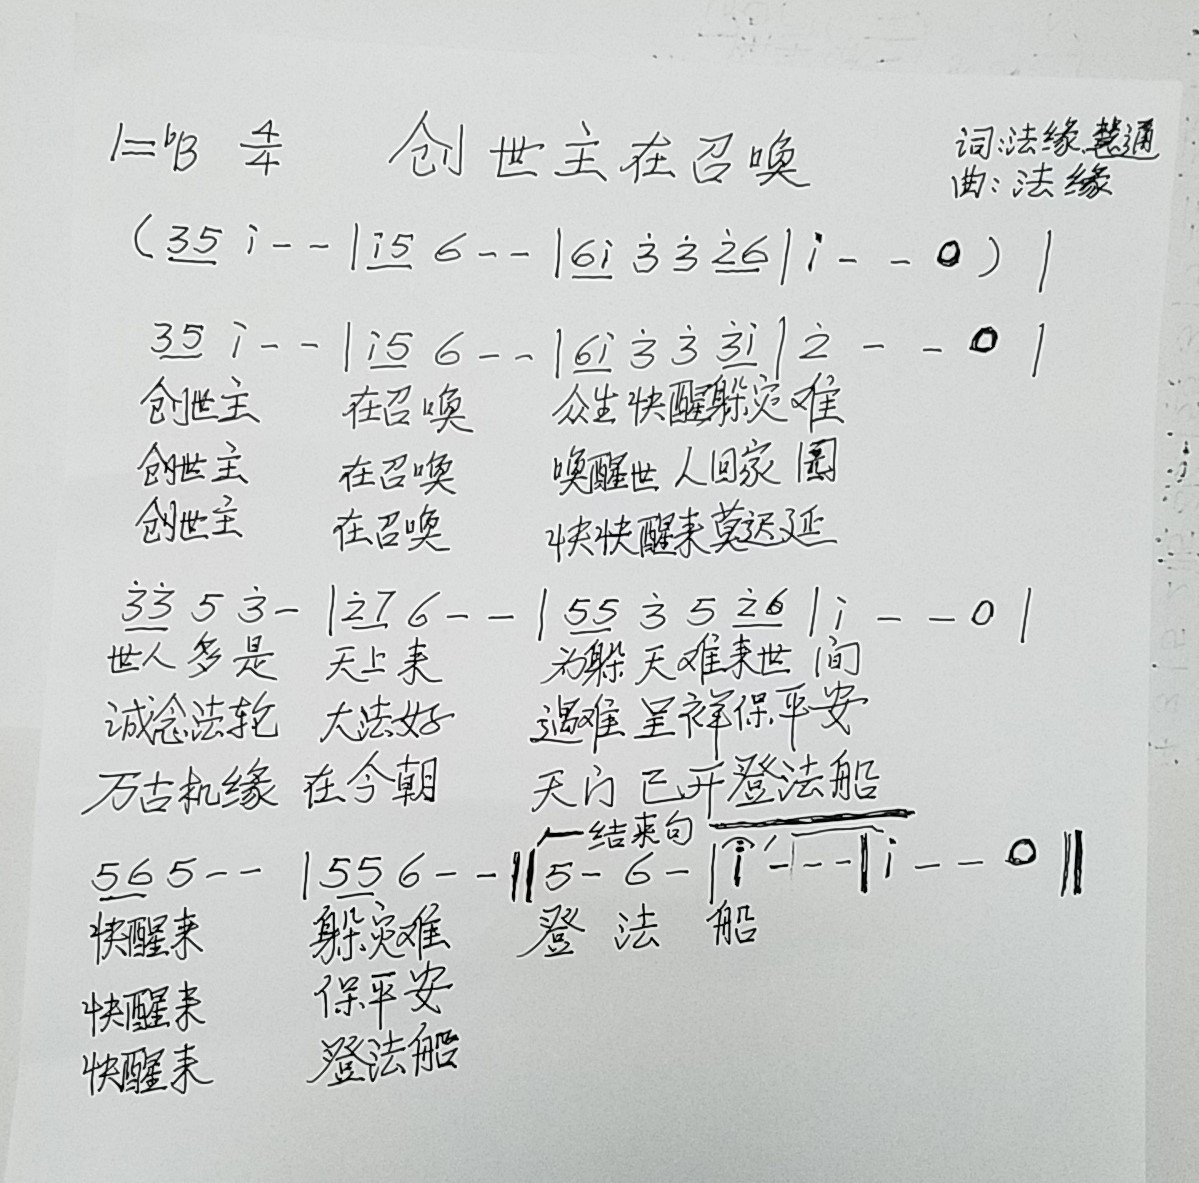 1=ᵇB 4/4 创世主在召唤 词:法缘.慧通
曲:法缘
(35 i - - | i5 6 - - | 6i 3̇ 3̇ 2̇6 | i - - 0 ) |
35 i - - | i5 6 - - | 6i 3̇ 3̇ 3̇i | 2̇ - - 0 |
创世主 在召唤 众生快醒躲灾难
创世主 在召唤 唤醒世人回家園
创世主 在召唤 快快醒来莫迟延
3̇3̇ 5 3̇ - | 2̇7 6 - - | 55 3̇ 5 2̇6 | i - - 0 |
世人多是 天上来 为躲天难来世间
诚念法轮 大法好 遇难呈祥保平安
万古机缘 在今朝 天门已开登法船
结束句
56 5 - - | 55 6 - - ‖ 5 - 6 - | i - - - | i - - 0 ‖
快醒来 躲灾难 登法船
快醒来 保平安
快醒来 登法船